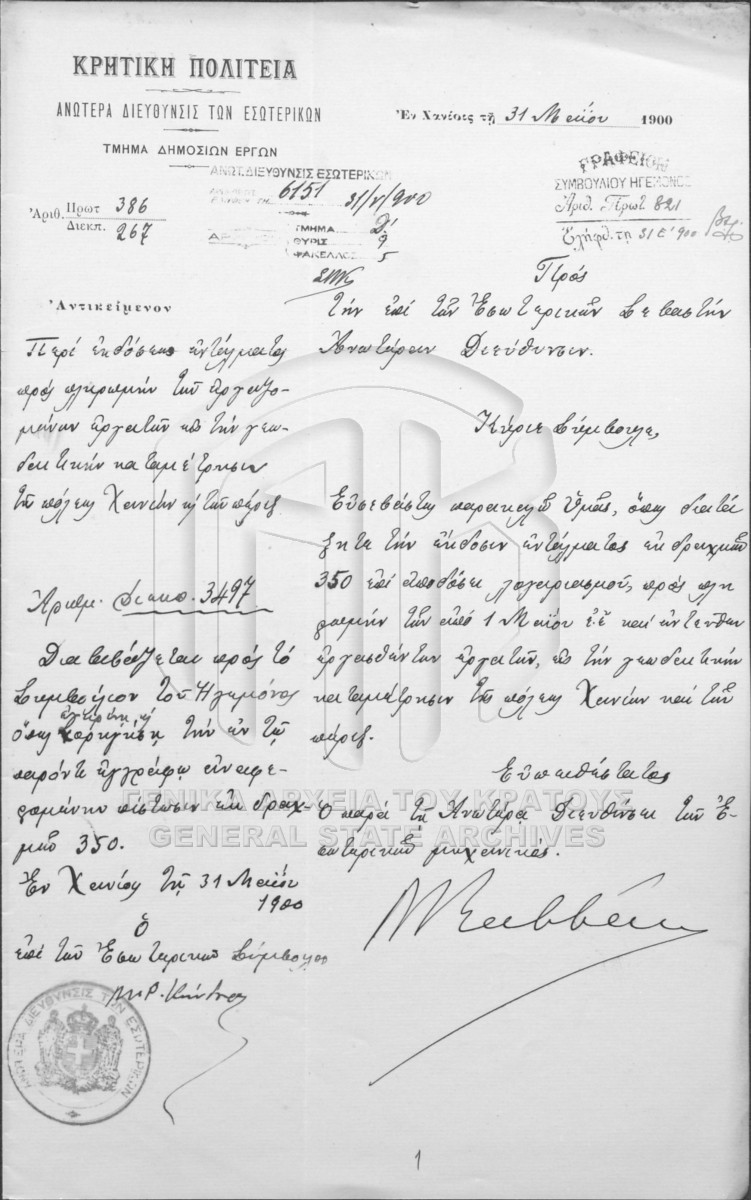 ΚΡΗΤΙΚΗ ΠΟΛΙΤΕΙΑ
ΑΝΩΤΕΡΑ ΔΙΕΥΘΥΝΣΙΣ ΤΩΝ ΕΣΩΤΕΡΙΚΩΝ
ΤΜΗΜΑ ΔΗΜΟΣΙΩΝ ΕΡΓΩΝ
Ἐν Χανίοις τῇ 31 Μαΐου 1900
ΑΝΩΤ. ΔΙΕΥΘΥΝΣΙΣ ΕΣΩΤΕΡΙΚΩΝ
6151 31/V/900
ΤΜΗΜΑ Δ'
ΘΥΡΙΣ 9
ΦΑΚΕΛΛΟΣ 5
ΓΡΑΦΕΙΟΝ
ΣΥΜΒΟΥΛΙΟΥ ΗΓΕΜΟΝΟΣ
Ἀριθ. Πρωτ. 821
Ἐλήφθ. τῃ 31 Ε' 900
Ἀριθ. Πρωτ 386
Διεκπ. 267
Ἀντικείμενον
Περὶ ἐκδόσεως ἐντάλματος
πρὸς πληρωμὴν τῶν ἐργαζο-
μένων ἐργατῶν εἰς τὴν γεω-
δαιτικὴν καταμέτρησιν
τῆς πόλεως Χανίων κ τῶν πέριξ
Ἀριθμ. Διεκπ. 3497
Διαβιβάζεται πρὸς τὸ
Συμβούλιον τοῦ Ἡγεμόνος
ὅπως ἐγκρίνῃ κ
χορηγήσῃ τὴν ἐν τῷ
παρόντι ἐγγράφῳ ἀναφε-
ρομένην πίστωσιν ἐκ δραχ-
μῶν 350.
Ἐν Χανίοις τῇ 31 Μαΐου
1900
Ὁ
ἐπὶ τῶν Ἐσωτερικῶν Σύμβουλος
Πρὸς
Τὴν ἐπὶ τῶν Ἐσωτερικῶν Σεβαστὴν
Ἀνωτέραν Διεύθυνσιν.
Κύριε Σύμβουλε,
Εὐσεβάστως παρακαλῶ Ὑμᾶς, ὅπως διατά
ξητε τὴν ἔκδοσιν ἐντάλματος ἐκ δραχμῶν
350 ἐπὶ ἀποδόσει λογαριασμοῦ, πρὸς πλη
ρωμὴν τῶν ἀπὸ 1 Μαΐου ἐ.ἔ καὶ ἐντεῦθεν
ἐργασθέντων ἐργατῶν, εἰς τὴν γεωδαιτικὴν
καταμέτρησιν τῆς πόλεως Χανίων καὶ τῶν
πέριξ.
Εὐπειθέστατος
Ὁ παρὰ τῇ Ἀνωτέρᾳ Διευθύνσει τῶν Ἐ-
σωτερικῶν μηχανικός.
ΓΕΝΙΚΑ ΑΡΧΕΙΑ ΤΟΥ ΚΡΑΤΟΥΣ
GENERAL STATE ARCHIVES
ΑΝΩΤΕΡΑ ΔΙΕΥΘΥΝΣΙΣ ΤΩΝ ΕΣΩΤΕΡΙΚΩΝ
1